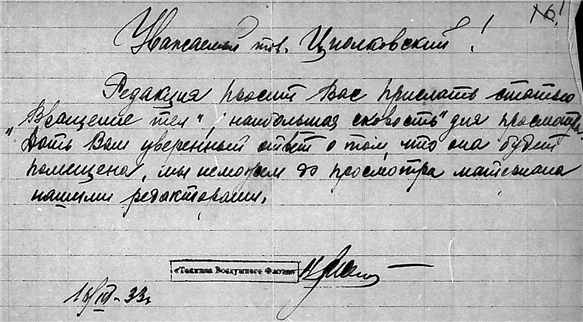 16!
Уважаемый тов. Циолковский!
Редакция просит Вас прислать статью
"Вращение тел", "наибольшая скорость" для просмотра.
Дать Вам уверенный ответ о том, что она будет
помещена, мы неможем до просмотра материала
нашими редакторами.
«Техника Воздушного Флота»
16/III-33г.